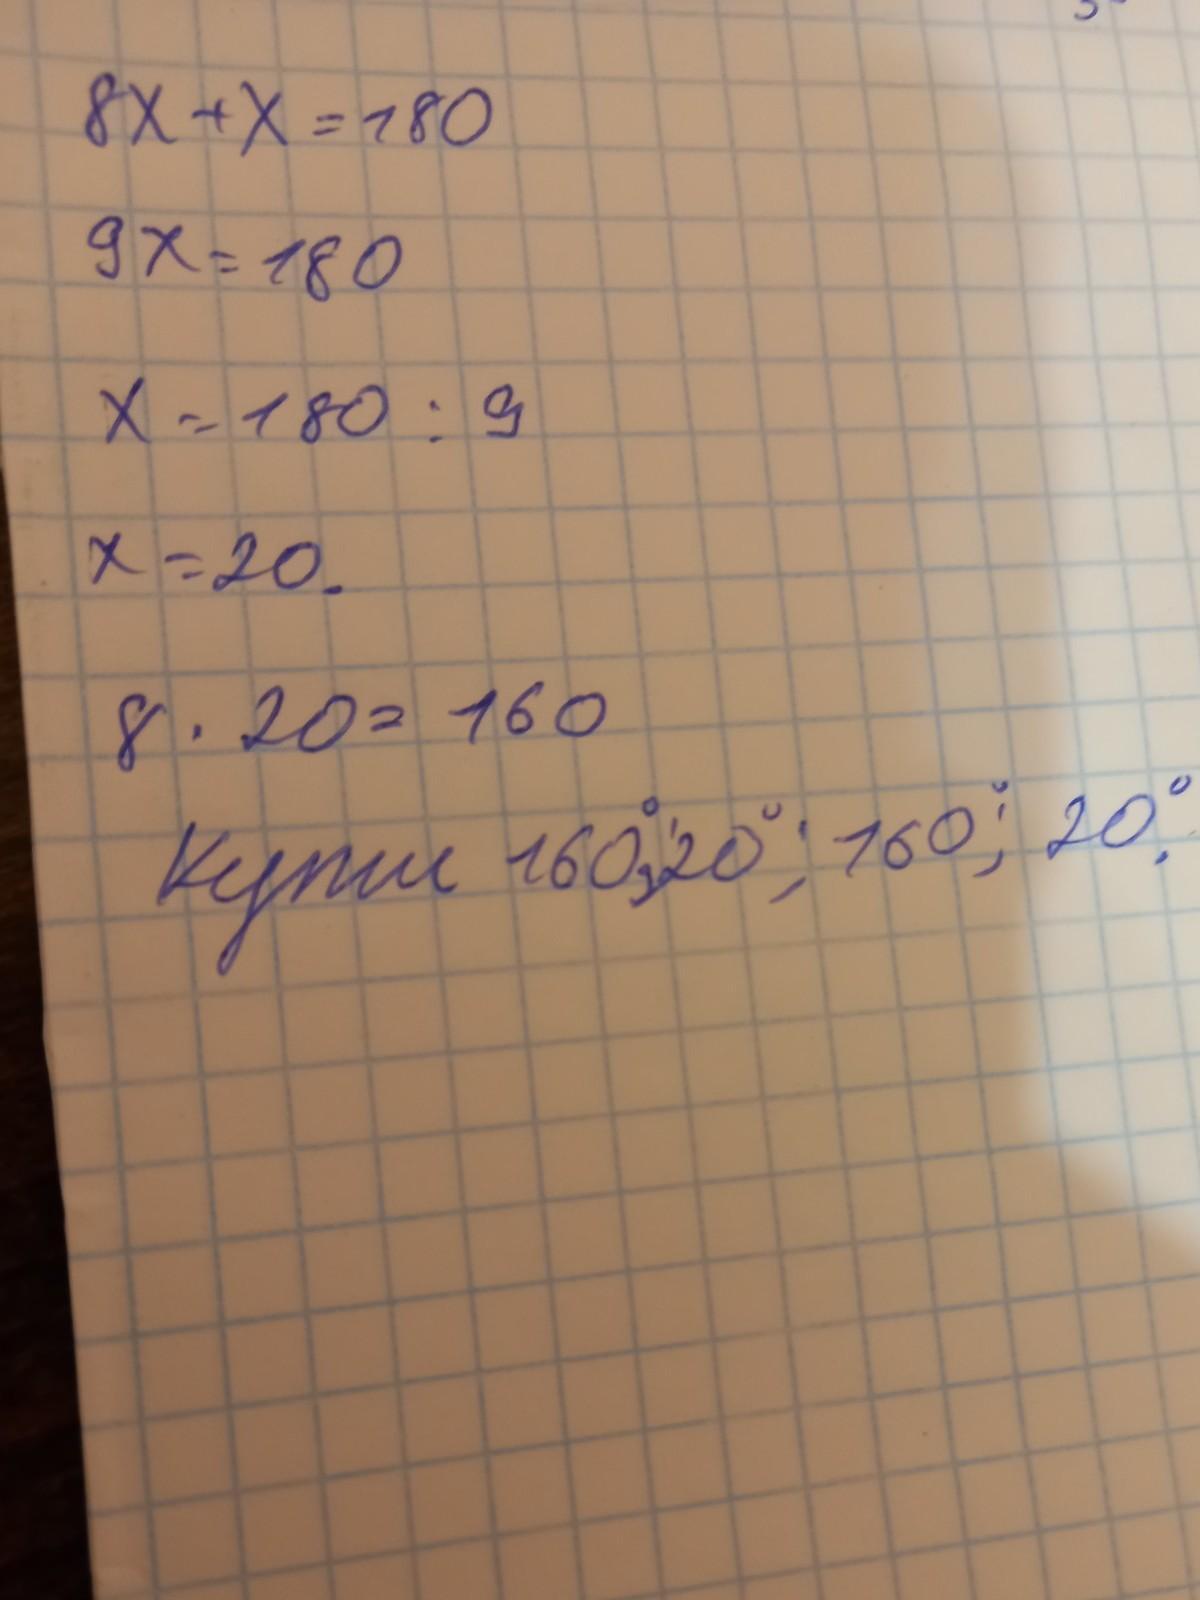 8x + x = 180
9x = 180
x = 180 : 9
x = 20.
8 · 20 = 160
Кути 160°; 20°; 160°; 20°.